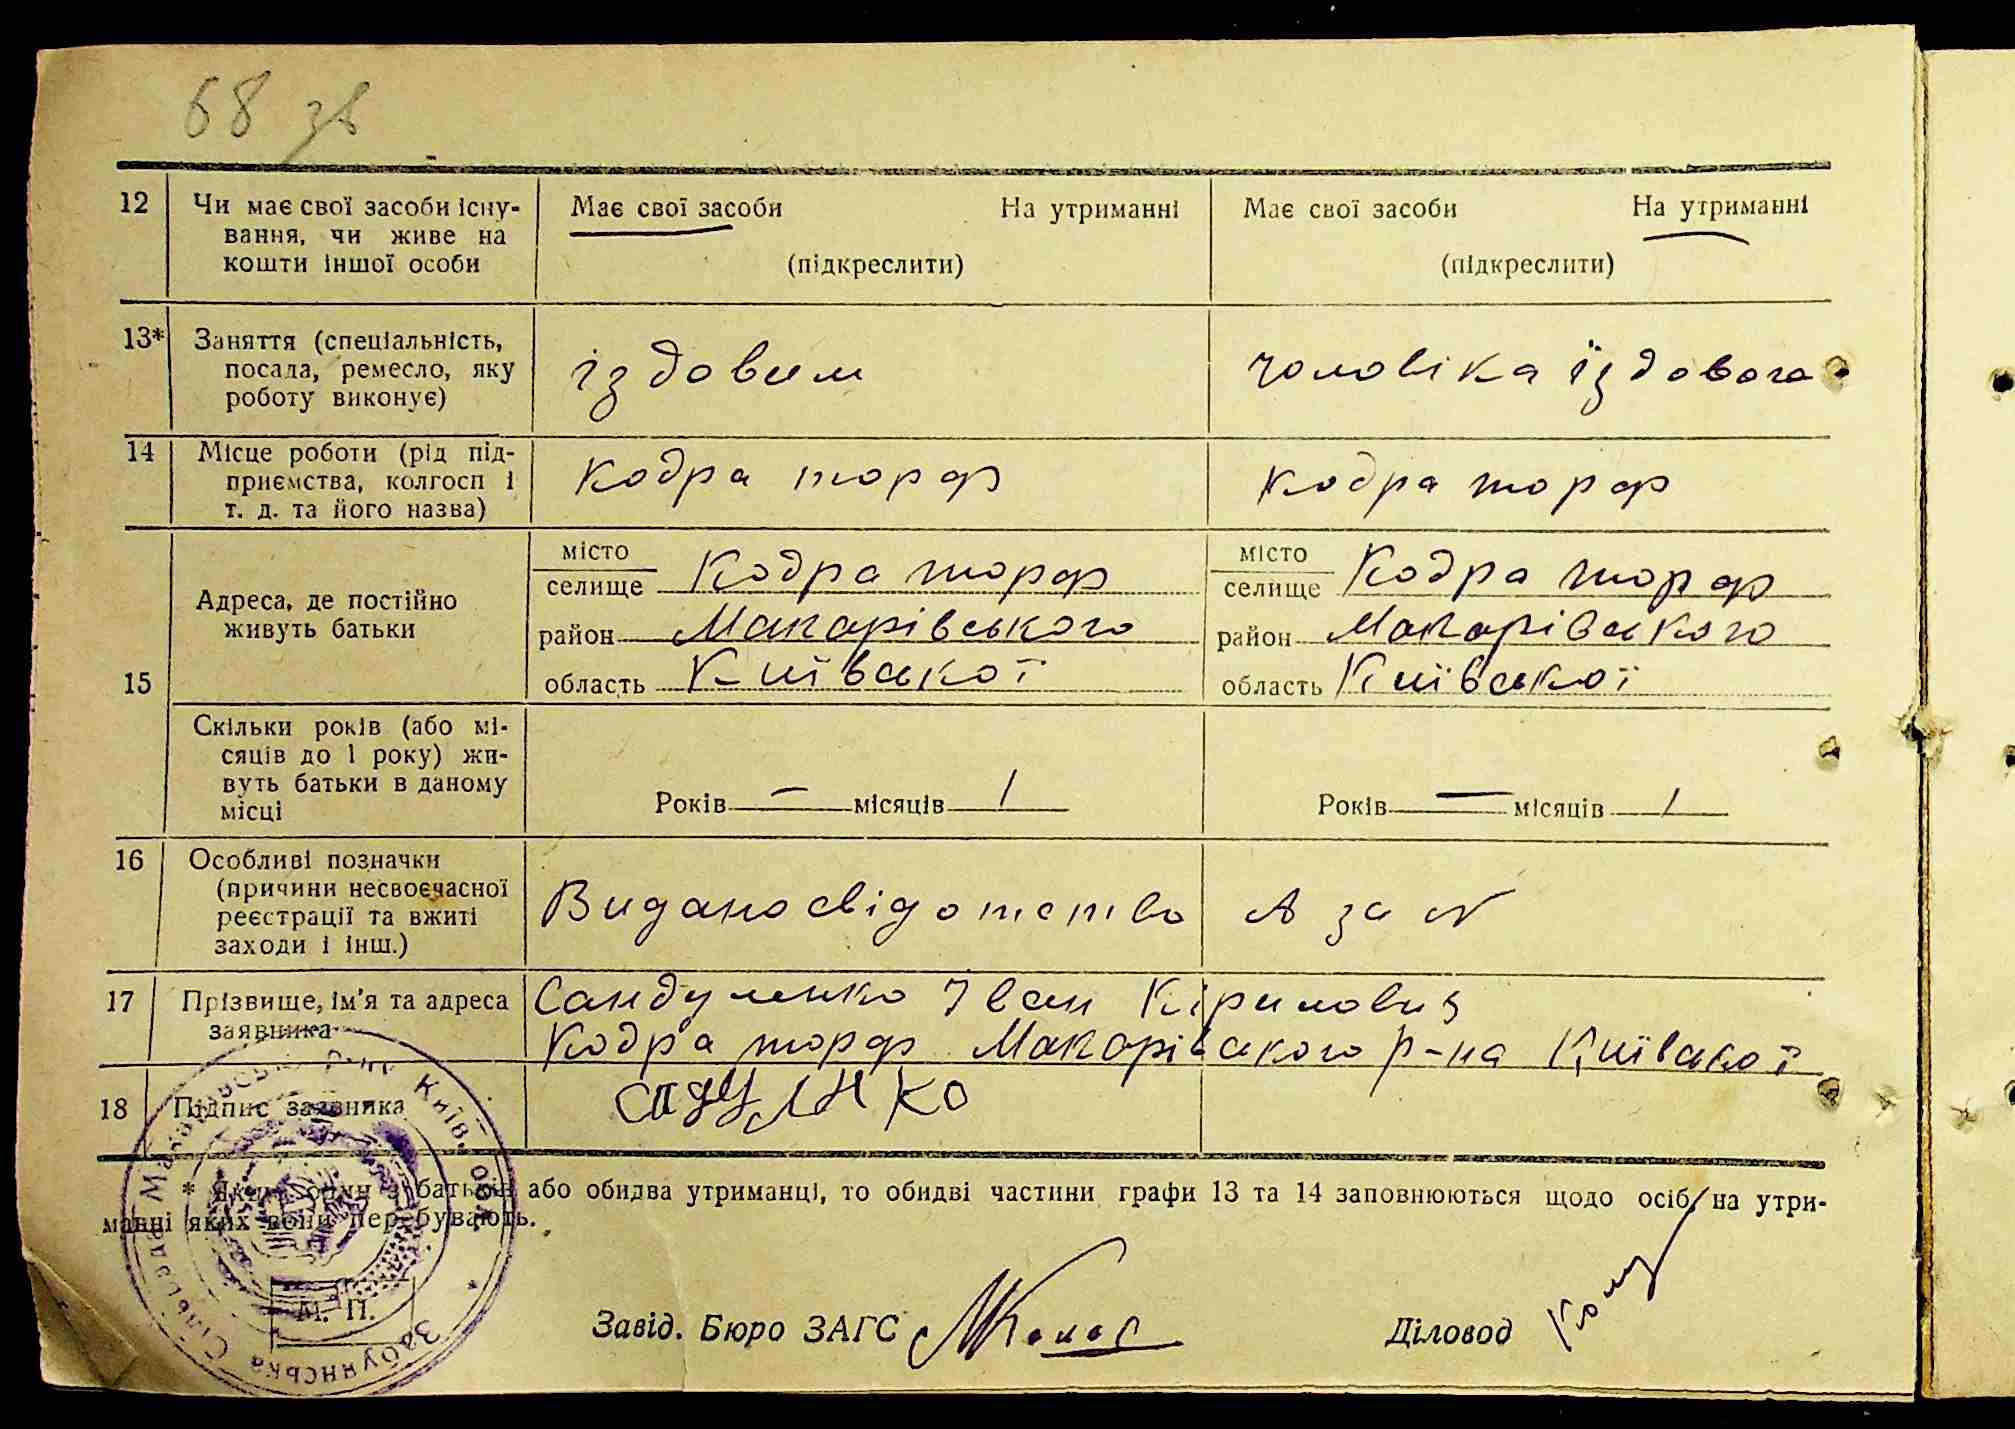 68 зв
12 Чи має свої засоби існу- Має свої засоби На утриманні Має свої засоби На утриманні
вання, чи живе на
кошти іншої особи (підкреслити) (підкреслити)
13* Заняття (спеціальність,
посада, ремесло, яку їздовим чоловіка їздового
роботу виконує)
14 Місце роботи (рід під- Кодра торф Кодра торф
приємства, колгосп і
т. д. та його назва)
15 Адреса, де постійно місто селище Кодра торф місто селище Кодра торф
живуть батьки район Макарівського район Макарівського
область Київської область Київської
Скільки років (або мі-
сяців до 1 року) жи-
вуть батьки в даному Років — місяців 1 Років — місяців 1
місці
16 Особливі позначки
(причини несвоєчасної Видано свідотство А за №
реєстрації та вжиті
заходи і інш.)
17 Прізвище, ім'я та адреса Сандуленко Іван Кірилович
заявника Кодра торф Макарівського р-на Київської
18 Підпис заявника
* Якщо один з батьків або обидва утриманці, то обидві частини графи 13 та 14 заповнюються щодо осіб, на утри-
манні яких вони перебувають.
М. П.
Завід. Бюро ЗАГС Діловод
Забуянська Сільрада Макарівськ. р-ну Київ. обл.